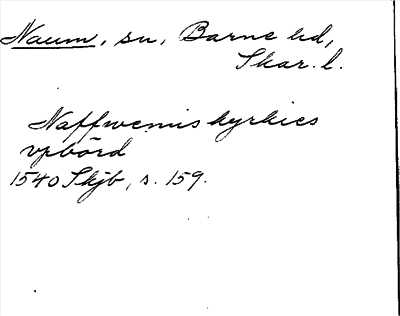 Naum, sn, Barne hd,
Skar. l.
Naffwemis kyrkies
vpbörd
1540 Skjb, s. 159.